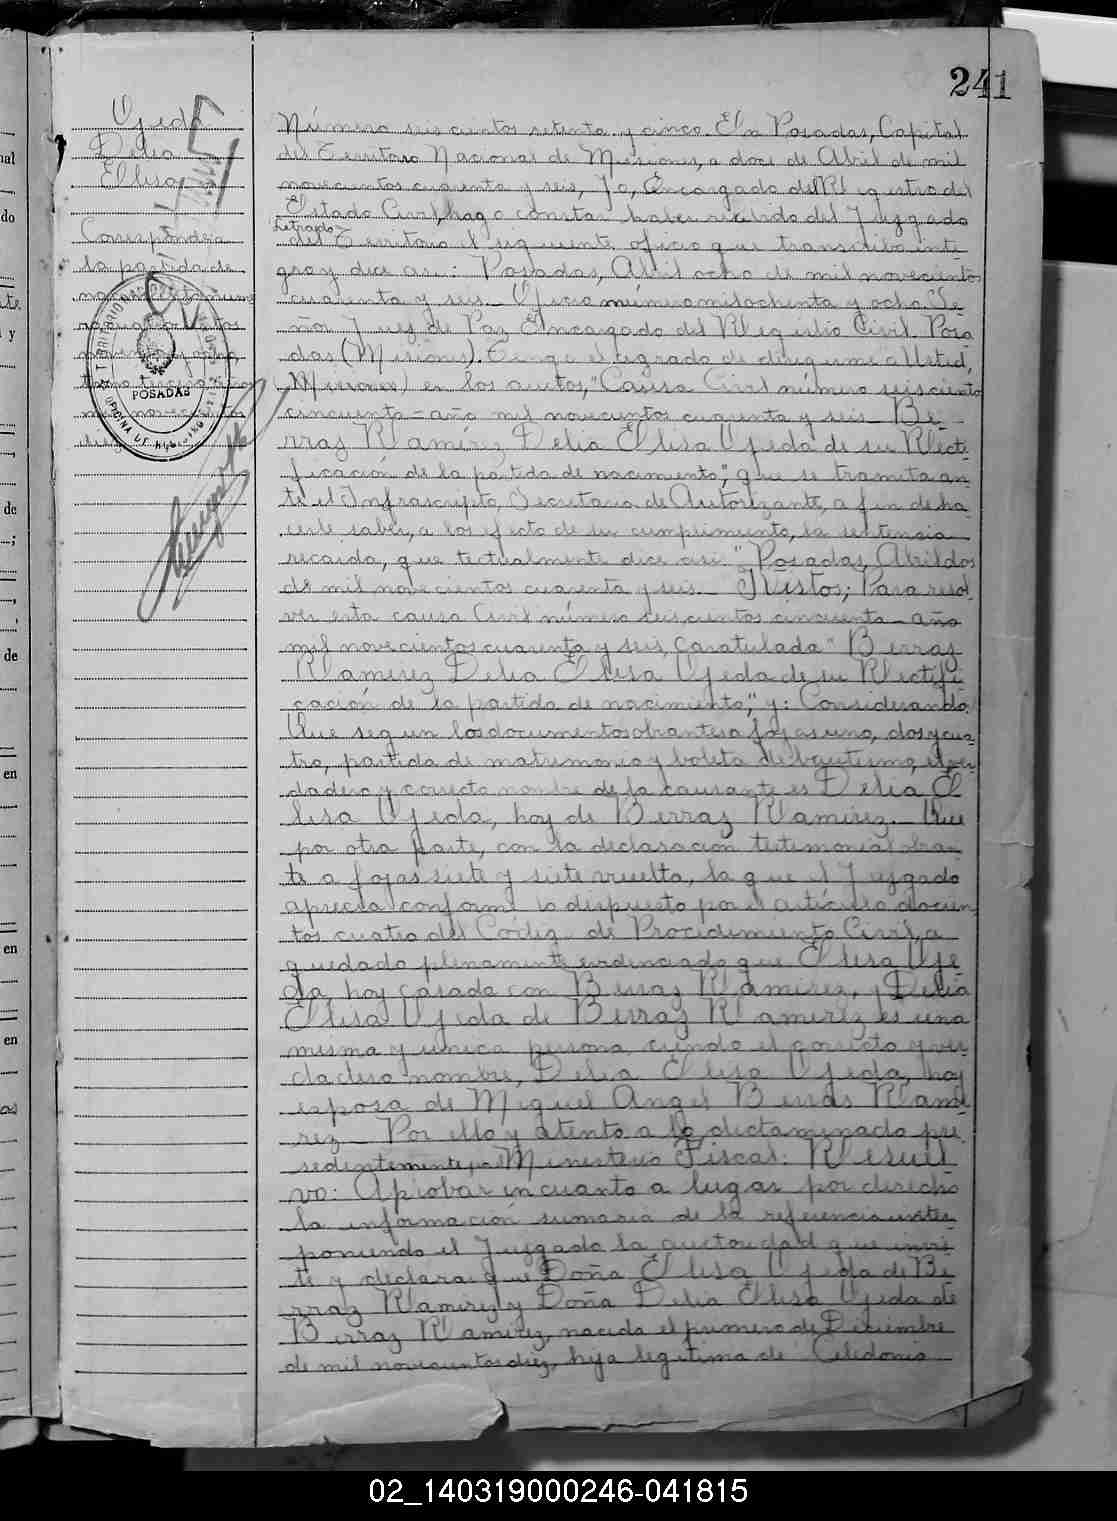 241
Ojeda
Delia
Ellisa
Corresponderia
la partida de
POSADAS
OFICINA DE
Número seiscientos setenta y cinco. En Posadas, Capital
del Territorio Nacional de Misiones, a doce de Abril de mil
novecientos cuarenta y seis, Yo, Encargado del Registro del
Estado Civil, hago constar haber recibido del Juzgado
Letrado
del Territorio el siguiente oficio que transcribo inte
gro y dice asi: Posadas, Abril ocho de mil novecientos
cuarenta y seis. Oficio número mil ochenta y ocho. Se
ñor Juez de Paz Encargado del Registro Civil. Posa
das (Misiones). Tengo el agrado de dirigirme a Usted,
Misiones) en los autos, "Causa Civil número seisciento
cincuenta - año mil novecientos cuarenta y seis Be-
rraz Ramírez Delia Elisa Ojeda de su Recti
ficación de la partida de nacimiento", que se tramita an
te el Infrascripto, Secretario de Autorizante, a fin de ha
cerle saber, a los efecto de su cumplimiento, la sentencia
recaida, que textualmente dice asi: "Posadas, Abril dos
de mil novecientos cuarenta y seis. Vistos; Para resol
ver esta causa Civil número seiscientos cincuenta - año
mil novecientos cuarenta y seis, caratulada "Berraz
Ramirez Delia Elisa Ojeda de su Rectifi
cación de la partida de nacimiento", y: Considerando:
Que segun los documentos obrantes a fojas uno, dos y cua
tro, partida de matrimonio y boleta de bautismo, el ver
dadero y correcto nombre de la causante es Delia E
lisa Ojeda, hoy de Berraz Ramirez. Que
por otra parte, con la declaracion testimonial obran
te a fojas siete y siete vuelta, la que el Juzgado
aprecia conforme lo dispuesto por el artículo doscien
tos cuatro del Códig de Procedimiento Civil, a
quedado plenamente evidenciado que Elisa Oje
da, hoy casada con Berraz Ramirez, y Delia
Elisa Ojeda de Berraz Ramirez es una
misma y unica persona, ciendo el correcto y ver
dadero nombre, Delia Elisa Ojeda, hoy
esposa de Miguel Angel Berras Rami
rez. Por ello y atento a lo dictaminado pre
sedentemente, por el Ministerio Fiscal: Resuel
vo: Aprobar en cuanto a lugar por derecho
la información sumaria de la referencia inter
poniendo el Juzgado la autoridad que invis
te y declarar que Doña Elisa Ojeda de Be
rraz Ramirez y Doña Delia Elisa Ojeda de
Berraz Ramirez, nacida el primero de Diciembre
de mil novecientos diez, hija legitima de Celedonio
02_140319000246-041815